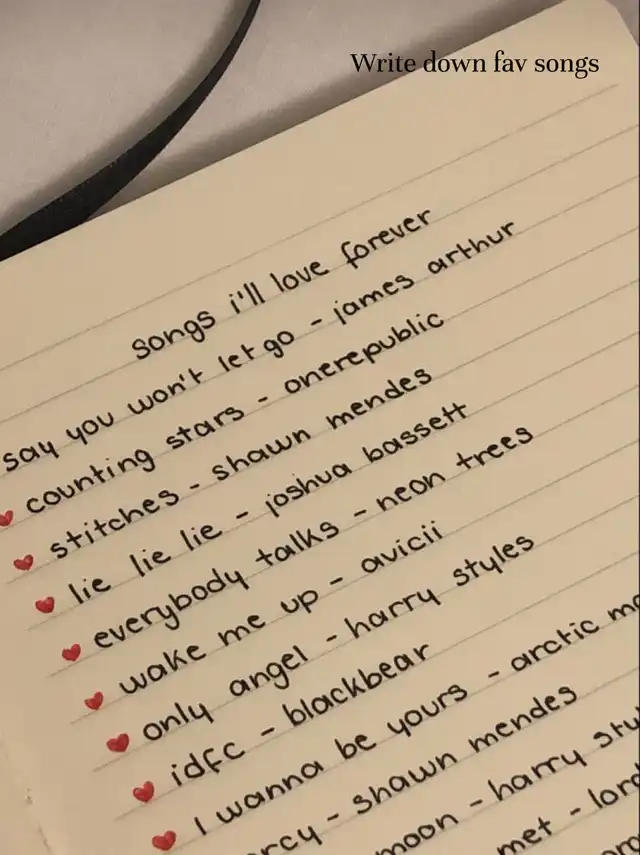 Write down fav songs
songs i'll love forever
say you won't let go - james arthur
counting stars - onerepublic
stitches - shawn mendes
lie lie lie - joshua bassett
everybody talks - neon trees
wake me up - avicii
only angel - harry styles
idfc - blackbear
I wanna be yours - arctic
- shawn mendes
moon - harry
met -